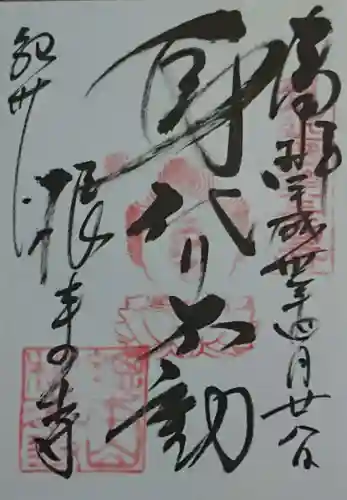 奉拝 平成廿年四月廿八日
身代り不動
紀州 根来寺